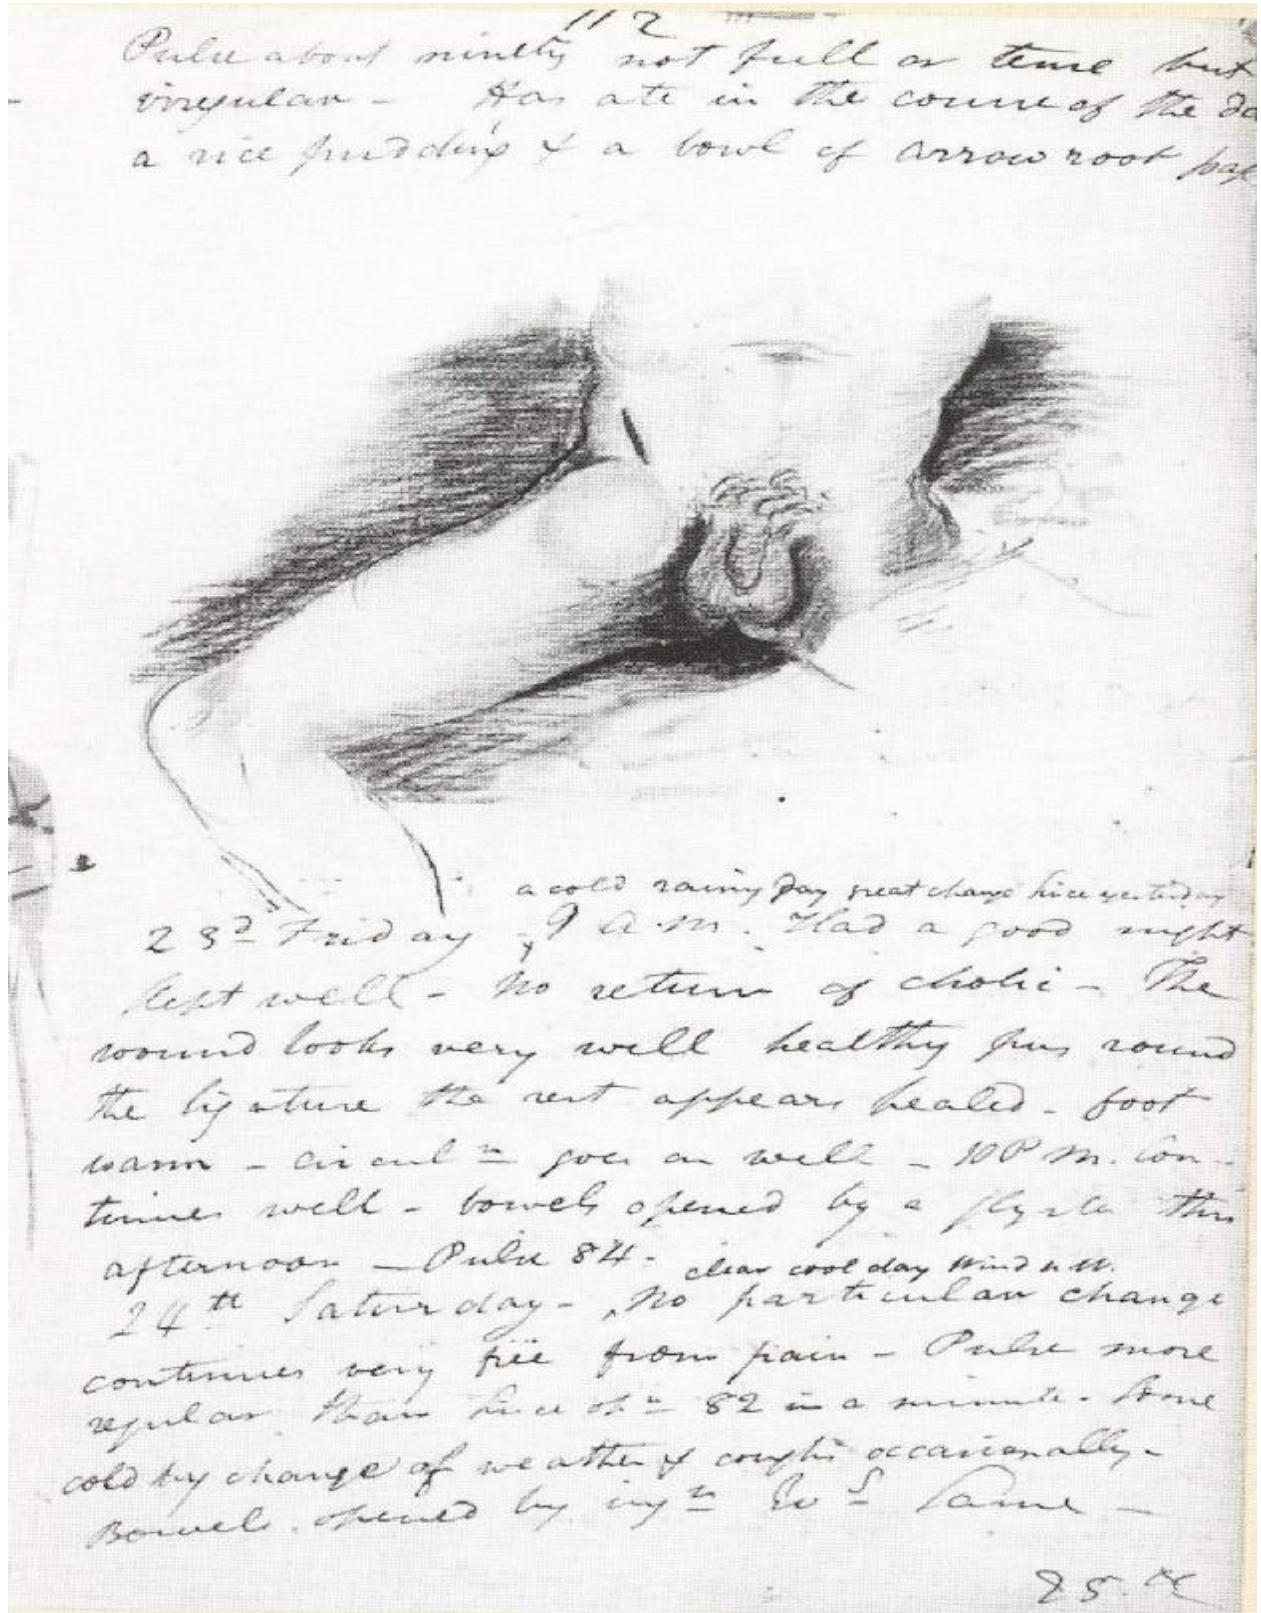 112
Pulse about ninety not full or tense but
irregular - Has ate in the course of the da
a rice pudding & a bowl of arrow root pap
a cold rainy day great change since yesterday
23d Friday - 9 A.M. Had a good night
slept well - No return of cholic - The
wound looks very well healthy pus round
the ligature the rest appears healed - foot
warm - circuln goes on well - 10 P.M. Con-
tinues well - bowels opened by a glyster this
afternoon - Pulse 84 - clear cool day Wind N.W.
24th Saturday - No particular change
continues very free from pain - Pulse more
regular than since opn 82 in a minute - Some
cold by change of weather & coughs occasionally -
Bowels opened by injn Evg Same -
25th